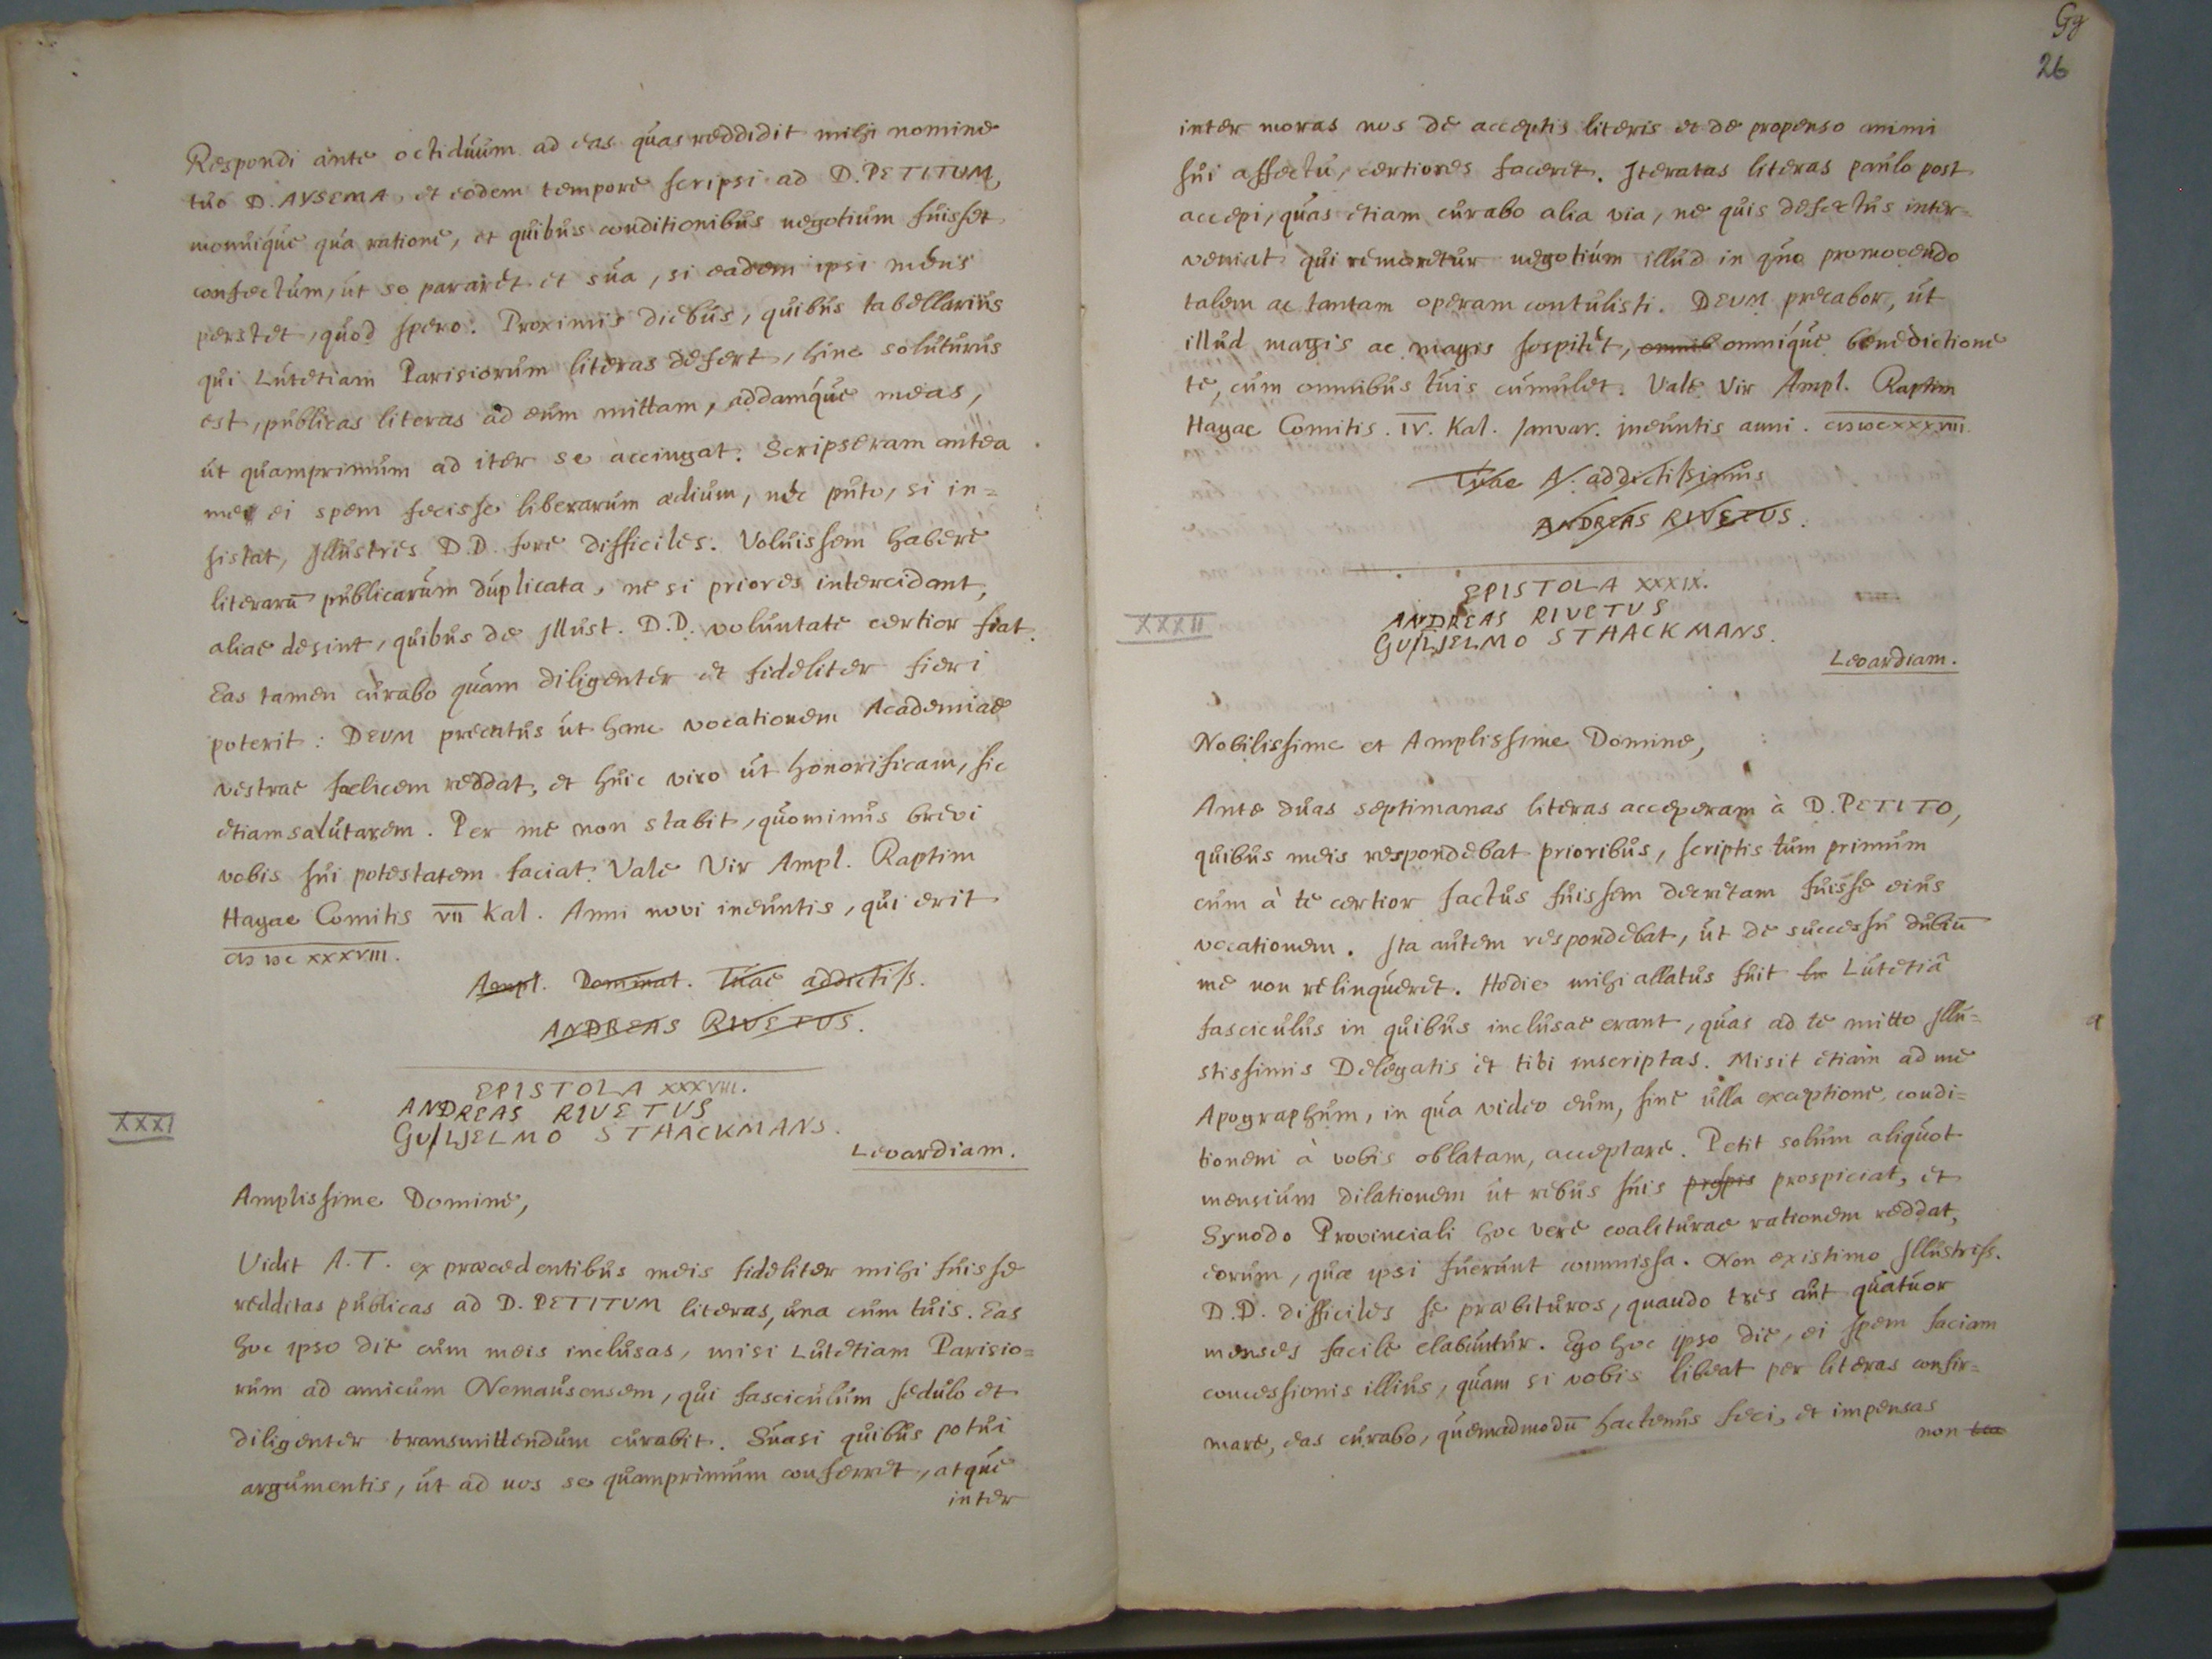 Respondi ante octiduum ad eas quas reddidit mihi nomine
tuo D. AYSEMA, et eodem tempore scripsi ad D. PETITUM,
monuique qua ratione, et quibus conditionibus negotium fuisset
confectum, ut se pararet et sua, si eadem ipsi mens
perstet, quod spero. Proximis diebus, quibus tabellarius
qui Lutetiam Parisiorum literas defert, hinc soluturus
est, publicas literas ad eum mittam, addamque meas,
ut quamprimum ad iter se accingat. Scripseram antea
me ei spem fecisse liberarum aedium, nec puto, si in=
sistat, Illustres D.D. fore difficiles. Voluissem habere
literarū publicarum duplicata, ne si priores intercidant,
aliae desint, quibus de Illust. D.D. voluntate certior fiat.
Eas tamen curabo quam diligenter et fideliter fieri
poterit: DEUM precatus ut hanc vocationem Academiae
vestrae faelicem reddat, et huic viro ut honorificam, sic
etiam salutarem. Per me non stabit, quominus brevi
vobis sui potestatem faciat. Vale Vir Ampl. Raptim
Hagae Comitis VII Kal. Anni novi ineuntis, qui erit
CIↃ IↃC XXXVIII.
Ampl. Dominat. Tuae addictiss.
ANDREAS RIVETUS.
EPISTOLA XXXVIII.
ANDREAS RIVETUS
XXXI
GUILJELMO STAACKMANS.
Leoardiam.
Amplissime Domine,
Vidit A.T. ex praecedentibus meis fideliter mihi fuisse
redditas publicas ad D. PETITUM literas, una cum tuis. Eas
hoc ipso die cum meis inclusas, misi Lutetiam Parisio=
rum ad amicum Nemausensem, qui fasciculum sedulo et
diligenter transmittendum curabit. Suasi quibus potui
argumentis, ut ad vos se quamprimum conferret, atque
inter
Gg
26
inter moras vos de acceptis literis et de propenso animi
sui affectu, certiores faceret. Iteratas literas paulo post
accepi, quas etiam curabo alia via, ne quis defectus inter=
veniat qui remoretur negotium illud in quo promovendo
talem ac tantam operam contulisti. DEUM precabor, ut
illud magis ac magis sospitet, omnib omnique benedictione
te, cum omnibus tuis cumulet. Vale Vir Ampl. Raptim
Hagae Comitis. IV. Kal. Januar. ineuntis anni. CIↃ IↃC XXXVIII.
Tuae A. addictissimus
ANDREAS RIVETUS.
EPISTOLA XXXIX.
ANDREAS RIVETUS
XXXII
GUILJELMO STAACKMANS.
Leoardiam.
Nobilissime et Amplissime Domine,
Ante duas septimanas literas acceperam à D. PETITO,
quibus meis respondebat prioribus, scriptis tum primum
cum à te certior factus fuissem decretam fuisse eius
vocationem. Ita autem respondebat, ut de successu dubiū
me non relinqueret. Hodie mihi allatus fuit Lutetiâ
fasciculus in quibus inclusae erant, quas ad te mitto Illu=
stissimis Delegatis et tibi inscriptas. Misit etiam ad me
Apographum, in qua video eum, sine ulla exceptione, condi=
tionem à vobis oblatam, acceptare. Petit solum aliquot
mensium dilationem ut rebus suis prospis prospiciat, et
Synodo Provinciali hoc vere coaliturae rationem reddat,
eorum, quae ipsi fuerunt commissa. Non existimo Illustriss.
D.D. difficiles se praebituros, quando tres aut quatuor
menses facile elabuntur. Ego hoc ipso die, ei spem faciam
concessionis illius, quam si vobis libeat per literas confir=
mare, eas curabo, quemadmodū hactenus feci, et impensas
non